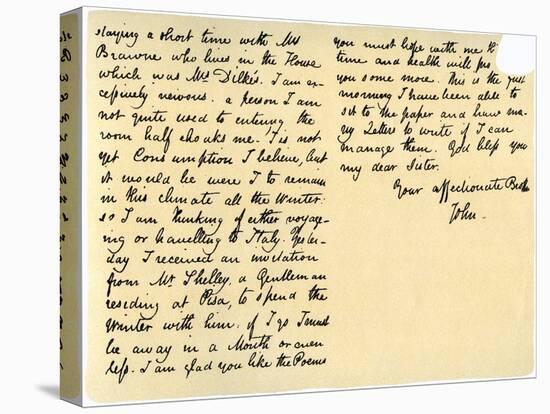 staying a short time with Mrs
Brawne who lives in the House
which was Mrs Dilke's. I am ex-
cessively nervous. a person I am
not quite used to entering the
room half choaks me. Tis not
yet Consumption I believe, but
it would be were I to remain
in this climate all the Winter:
so I am thinking of either voyag-
ing or travelling to Italy. Yester-
day I received an invitation
from Mr Shelley, a Gentleman
residing at Pisa, to spend the
Winter with him: if I go I must
be away in a Month or even
less. I am glad you like the Poems
you must hope with me th
time and health will pro
you some more. This is the first
morning I have been able to
sit to the paper and have ma-
ny Letters to write if I can
manage them. God bless you
my dear Sister.
Your affectionate Brother
John.